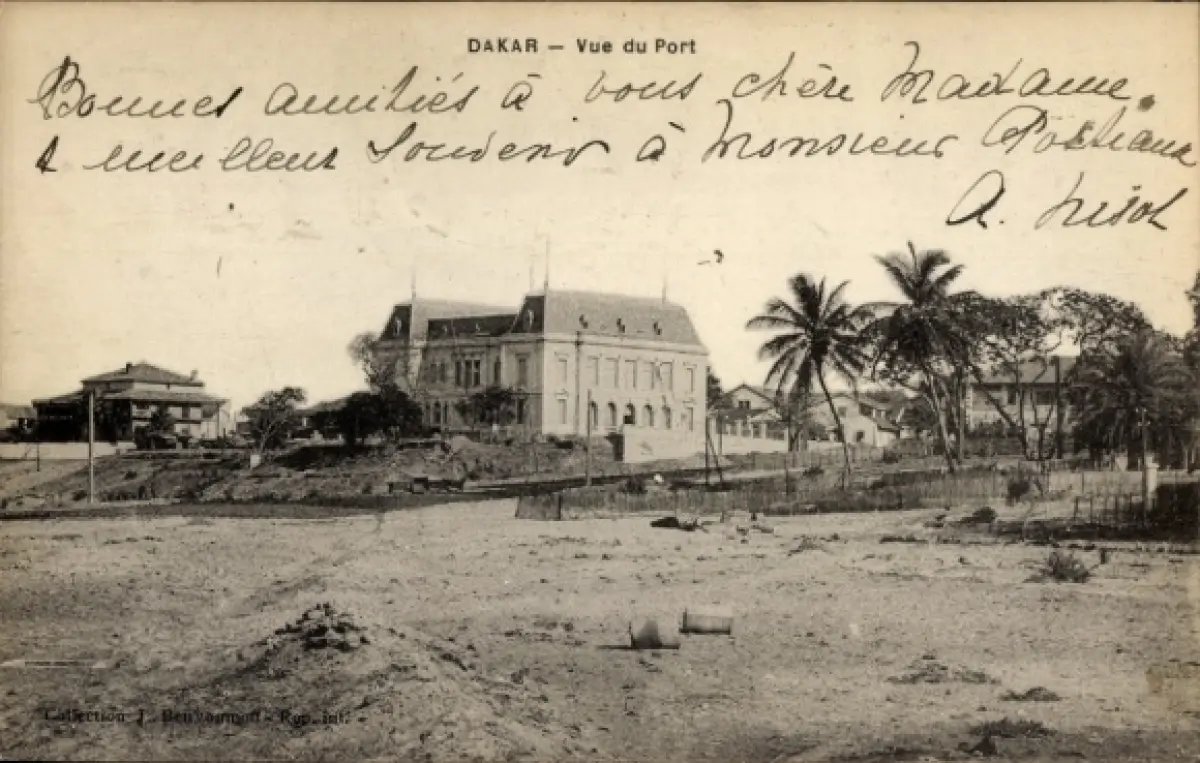 DAKAR — Vue du Port
Bonnes amitiés à vous chère Madame.
& meilleur Souvenir à Monsieur
A.
Collection J. Benyoumoff - Rep. int.